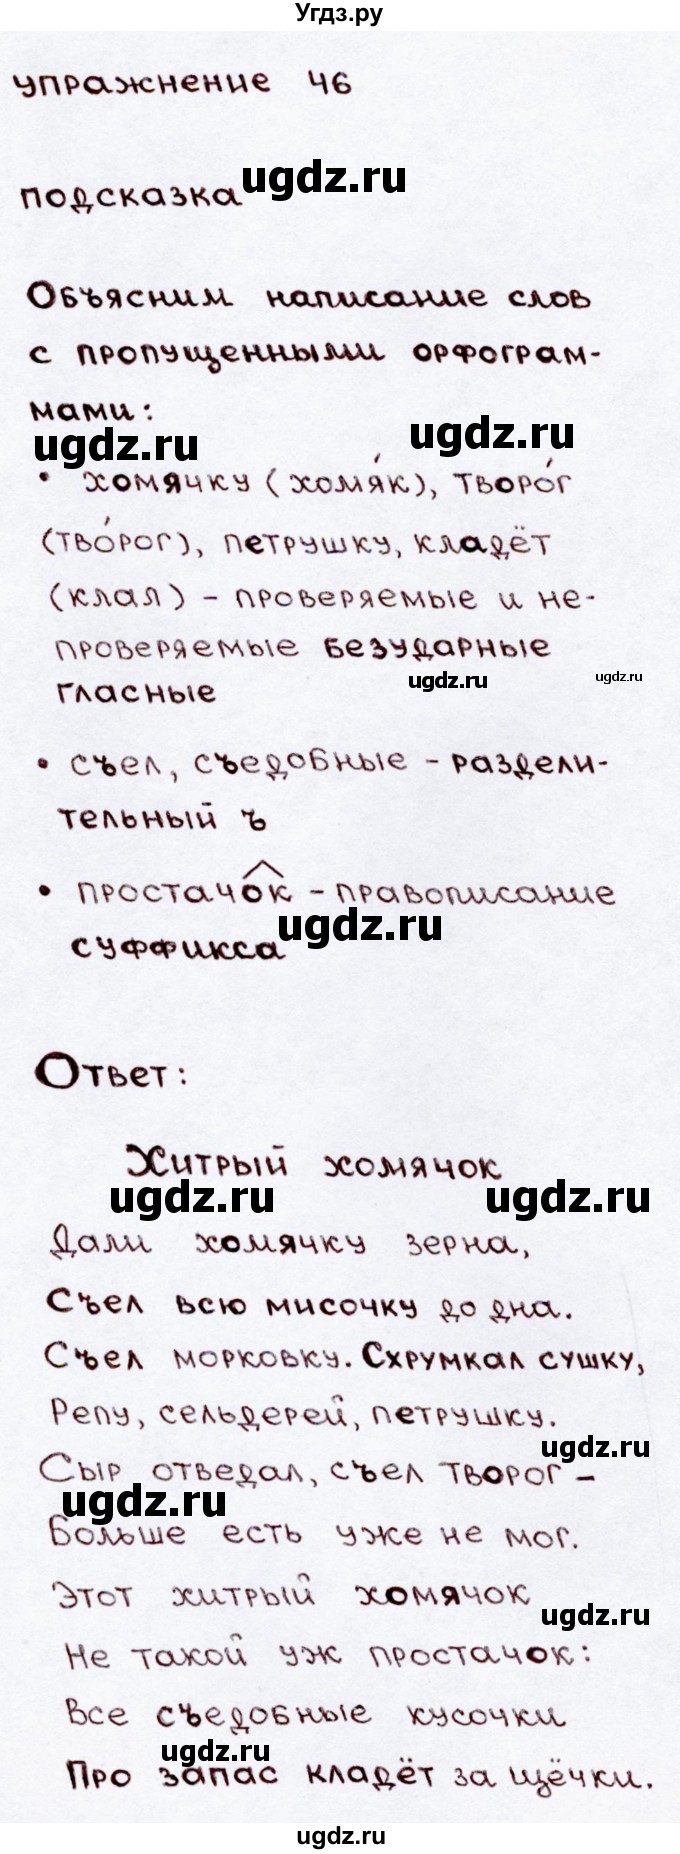 Угдз.ру
упражнение 46
подсказка
ugdz.ru
Объясним написание слов
с пропущенными орфограм-
мами:
ugdz.ru
ugdz.ru
• хомячку (хомя́к), творо́г
(тво́рог), петрушку, кладёт
(клал) - проверяемые и не-
проверяемые безударные
гласные
ugdz.ru
ugdz.ru
• съел, съедобные - раздели-
тельный ъ
• простачок - правописание
суффикса
ugdz.ru
Ответ:
Хитрый хомячок
ugdz.ru
ugdz.ru
Дали хомячку зерна,
Съел всю мисочку до дна.
Съел морковку. Схрумкал сушку,
Репу, сельдерей, петрушку.
ugdz.ru
Сыр отведал, съел творог -
ugdz.ru
Больше есть уже не мог.
Этот хитрый хомячок
ugdz.ru
Не такой уж простачок:
Все съедобные кусочки
ugdz.ru
Про запас кладёт за щёчки.
ugdz.ru